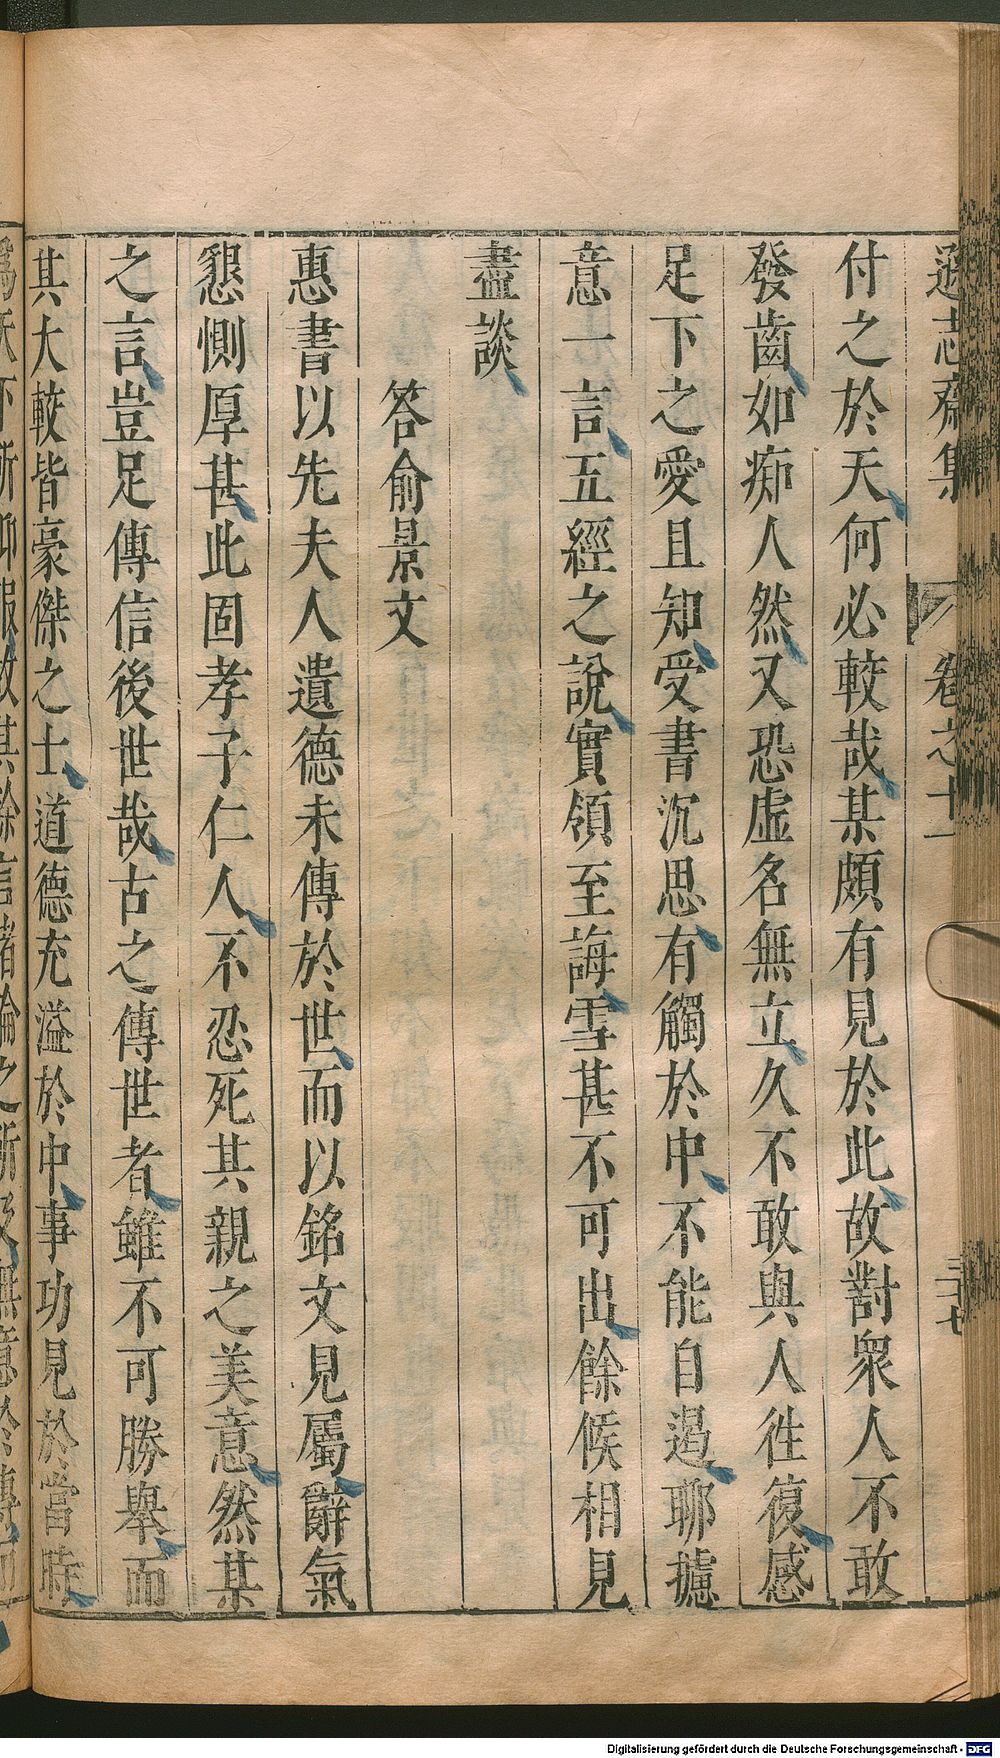 遜志齋集
卷之十一
三十七
付之於天何必較哉某頗有見於此故對衆人不敢
發齒如痴人然又恐虛名無立久不敢與人徃復感
足下之愛且知受書沉思有觸於中不能自遏聊攄
意一言五經之說實領至誨雪甚不可出餘候相見
盡談
答俞景文
惠書以先夫人遺德未傳於世而以銘文見屬辭氣
懇惻厚甚此固孝子仁人不忍死其親之美意然某
之言豈足傳信後世哉古之傳世者雖不可勝舉而
其大較皆豪傑之士道德充溢於中事功見於當時
爲天下所仰服故其餘言緒論之所及無意於傳而
Digitalisierung gefördert durch die Deutsche Forschungsgemeinschaft - DFG